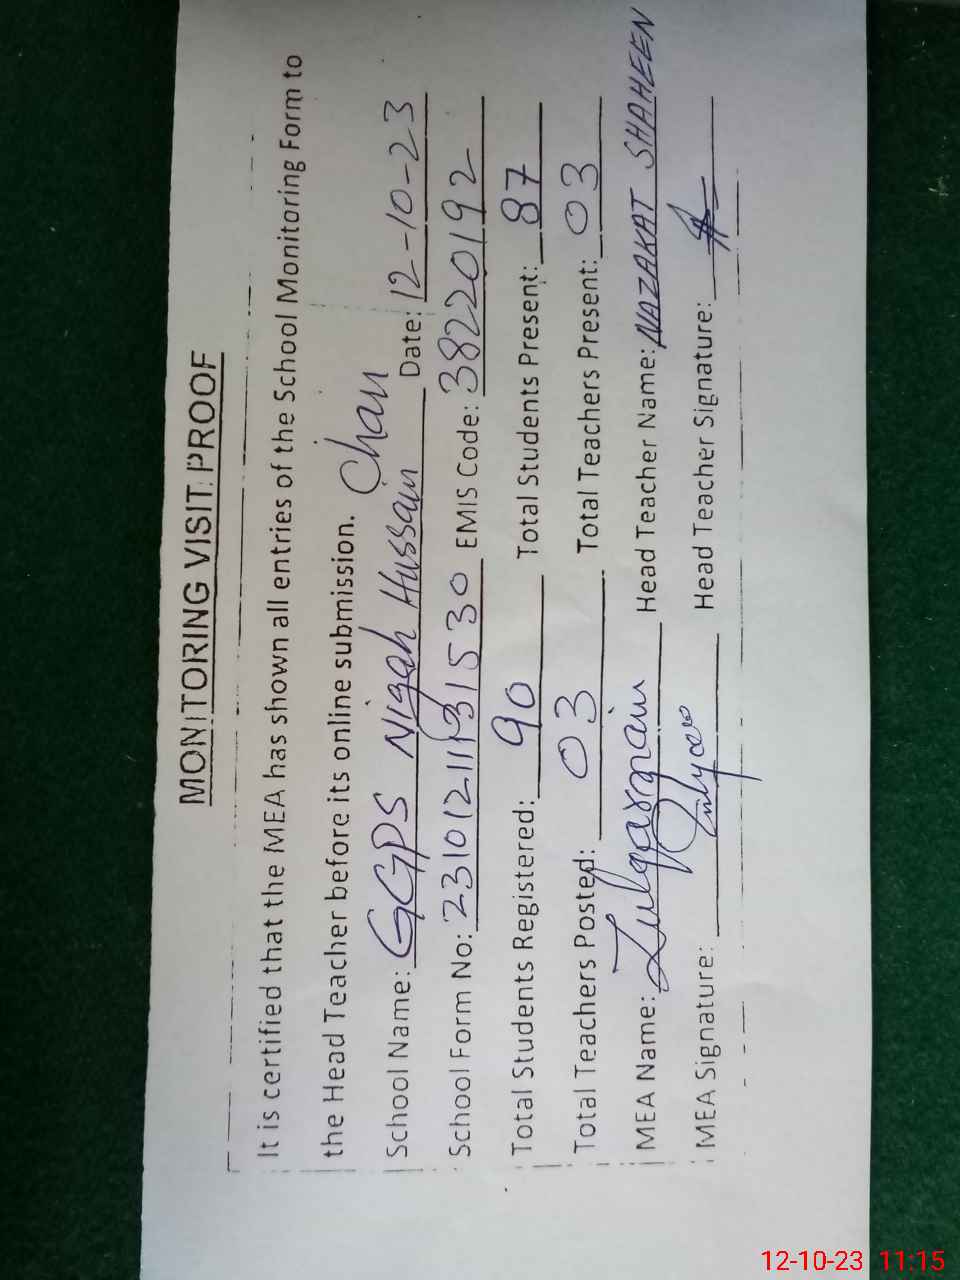 MONITORING VISIT PROOF
It is certified that the MEA has shown all entries of the School Monitoring Form to
the Head Teacher before its online submission.
School Name: GGPS Nigah Hussain Chan Date: 12-10-23
School Form No: EMIS Code: 38220192
Total Students Registered: 90 Total Students Present: 87
Total Teachers Posted: 03 Total Teachers Present: 03
MEA Name: Zulqarnain Head Teacher Name: NAZAKAT SHAHEEN
MEA Signature: Head Teacher Signature:
12-10-23 11:15